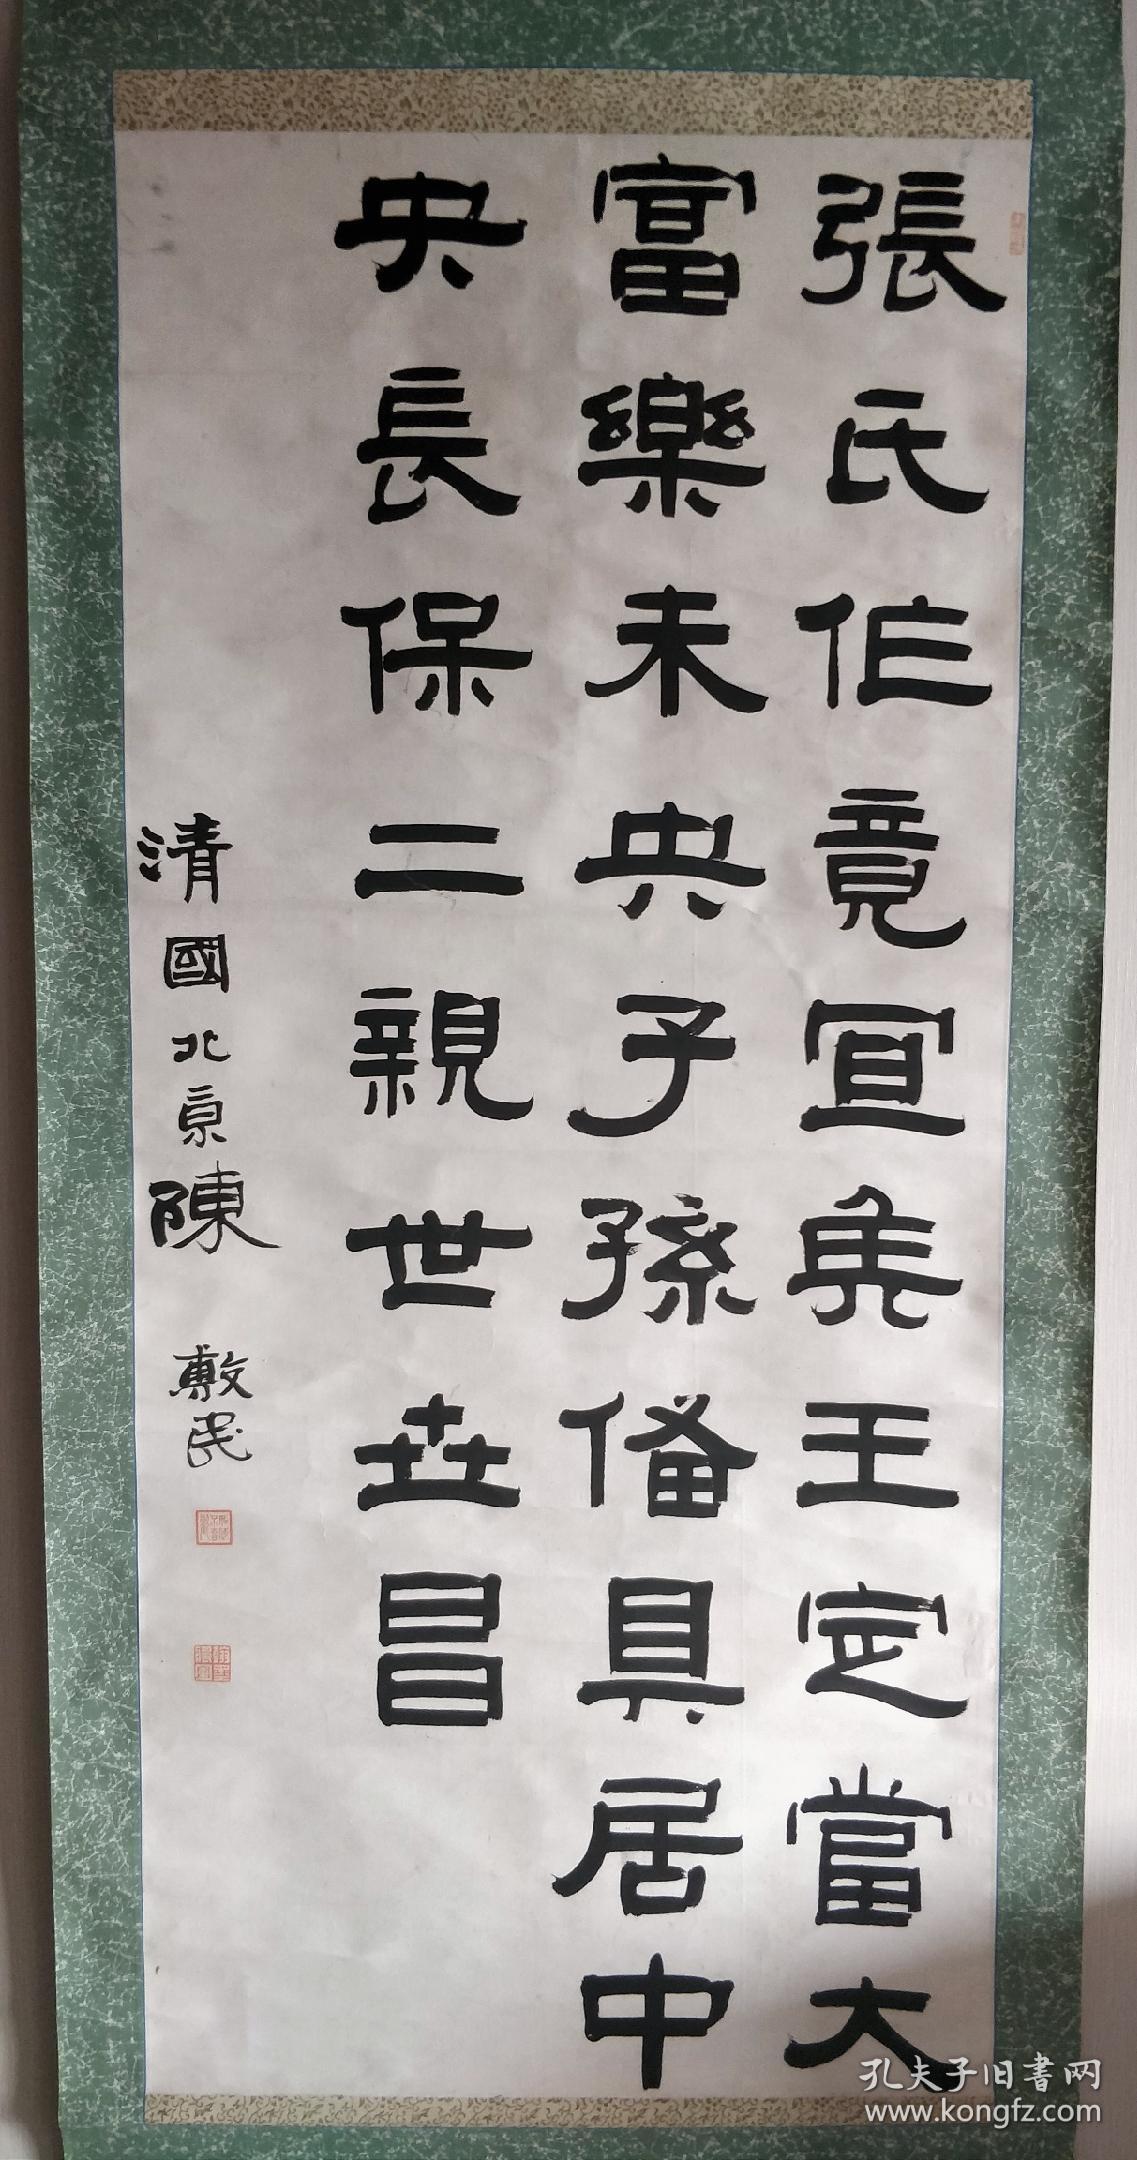 張氏作竟宜矦王家當大
富樂未央子孫備具居中
央長保二親世世昌
清國北京陳
敷民
孔夫子旧書网
www.kongfz.com